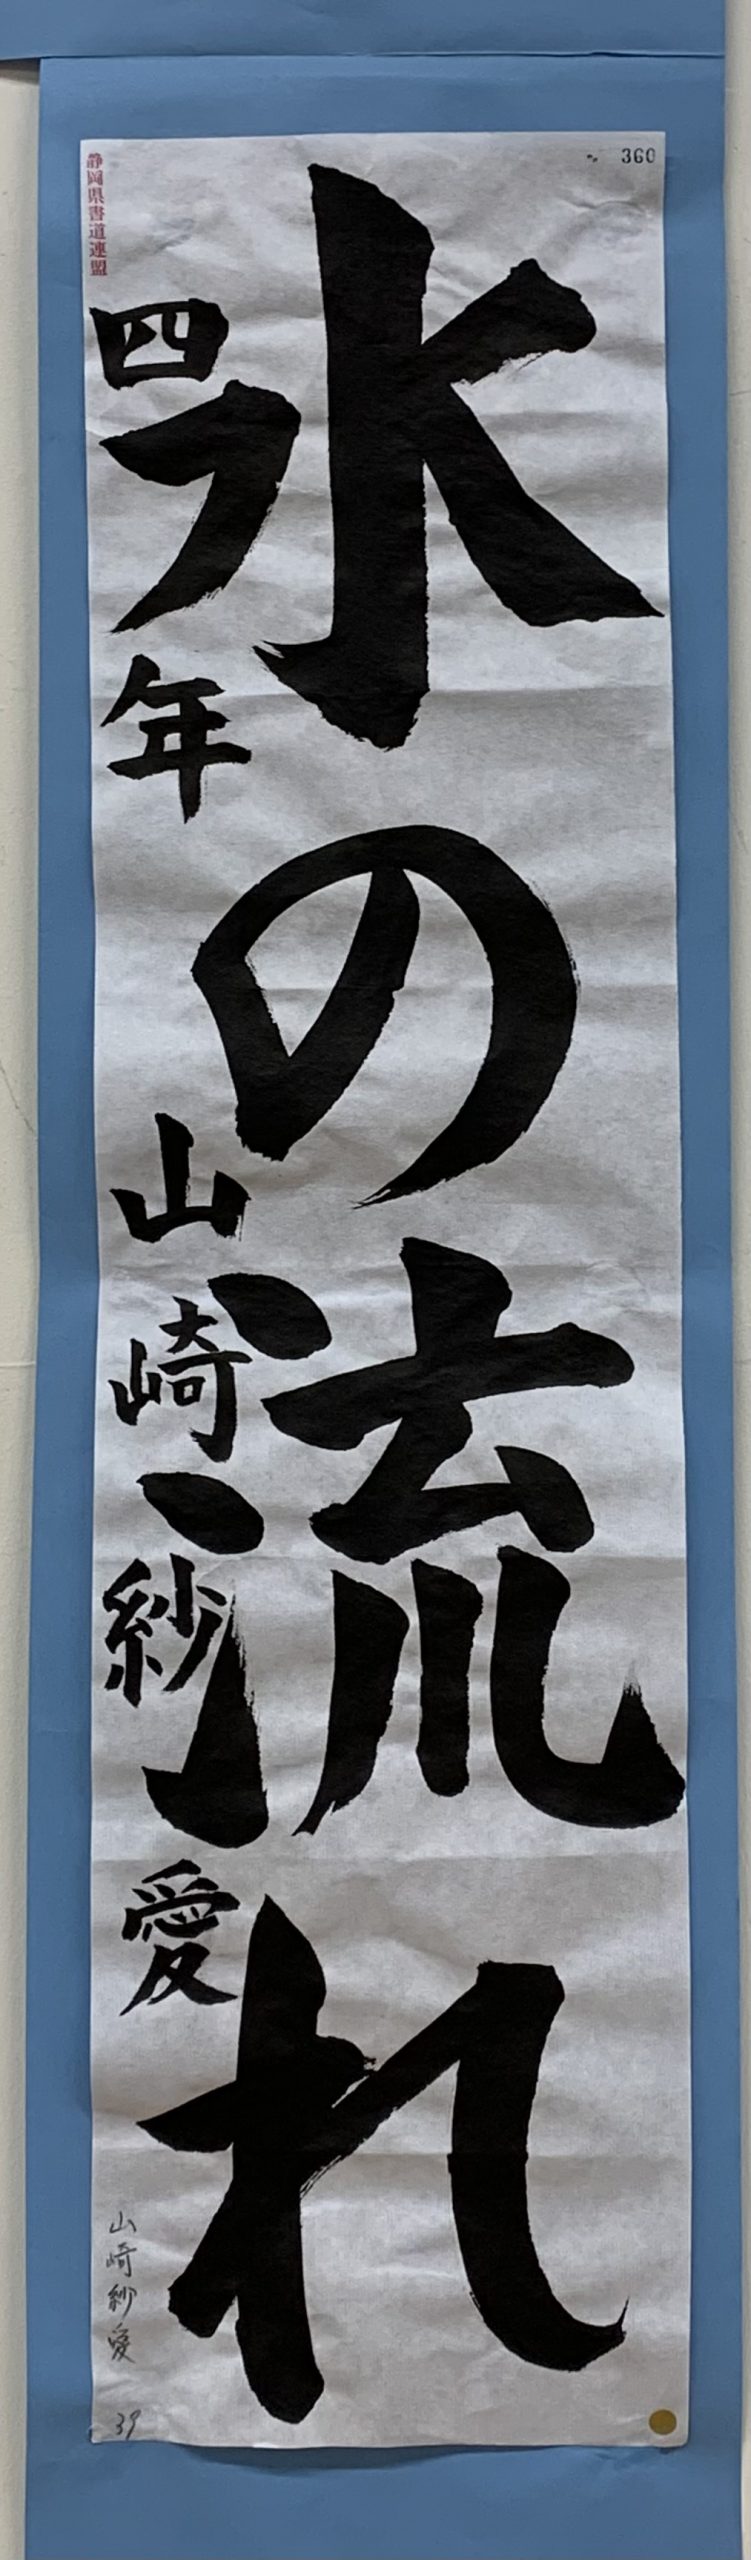 360
水の流れ
静岡県書道連盟
四年 山崎紗愛
山崎紗愛
39